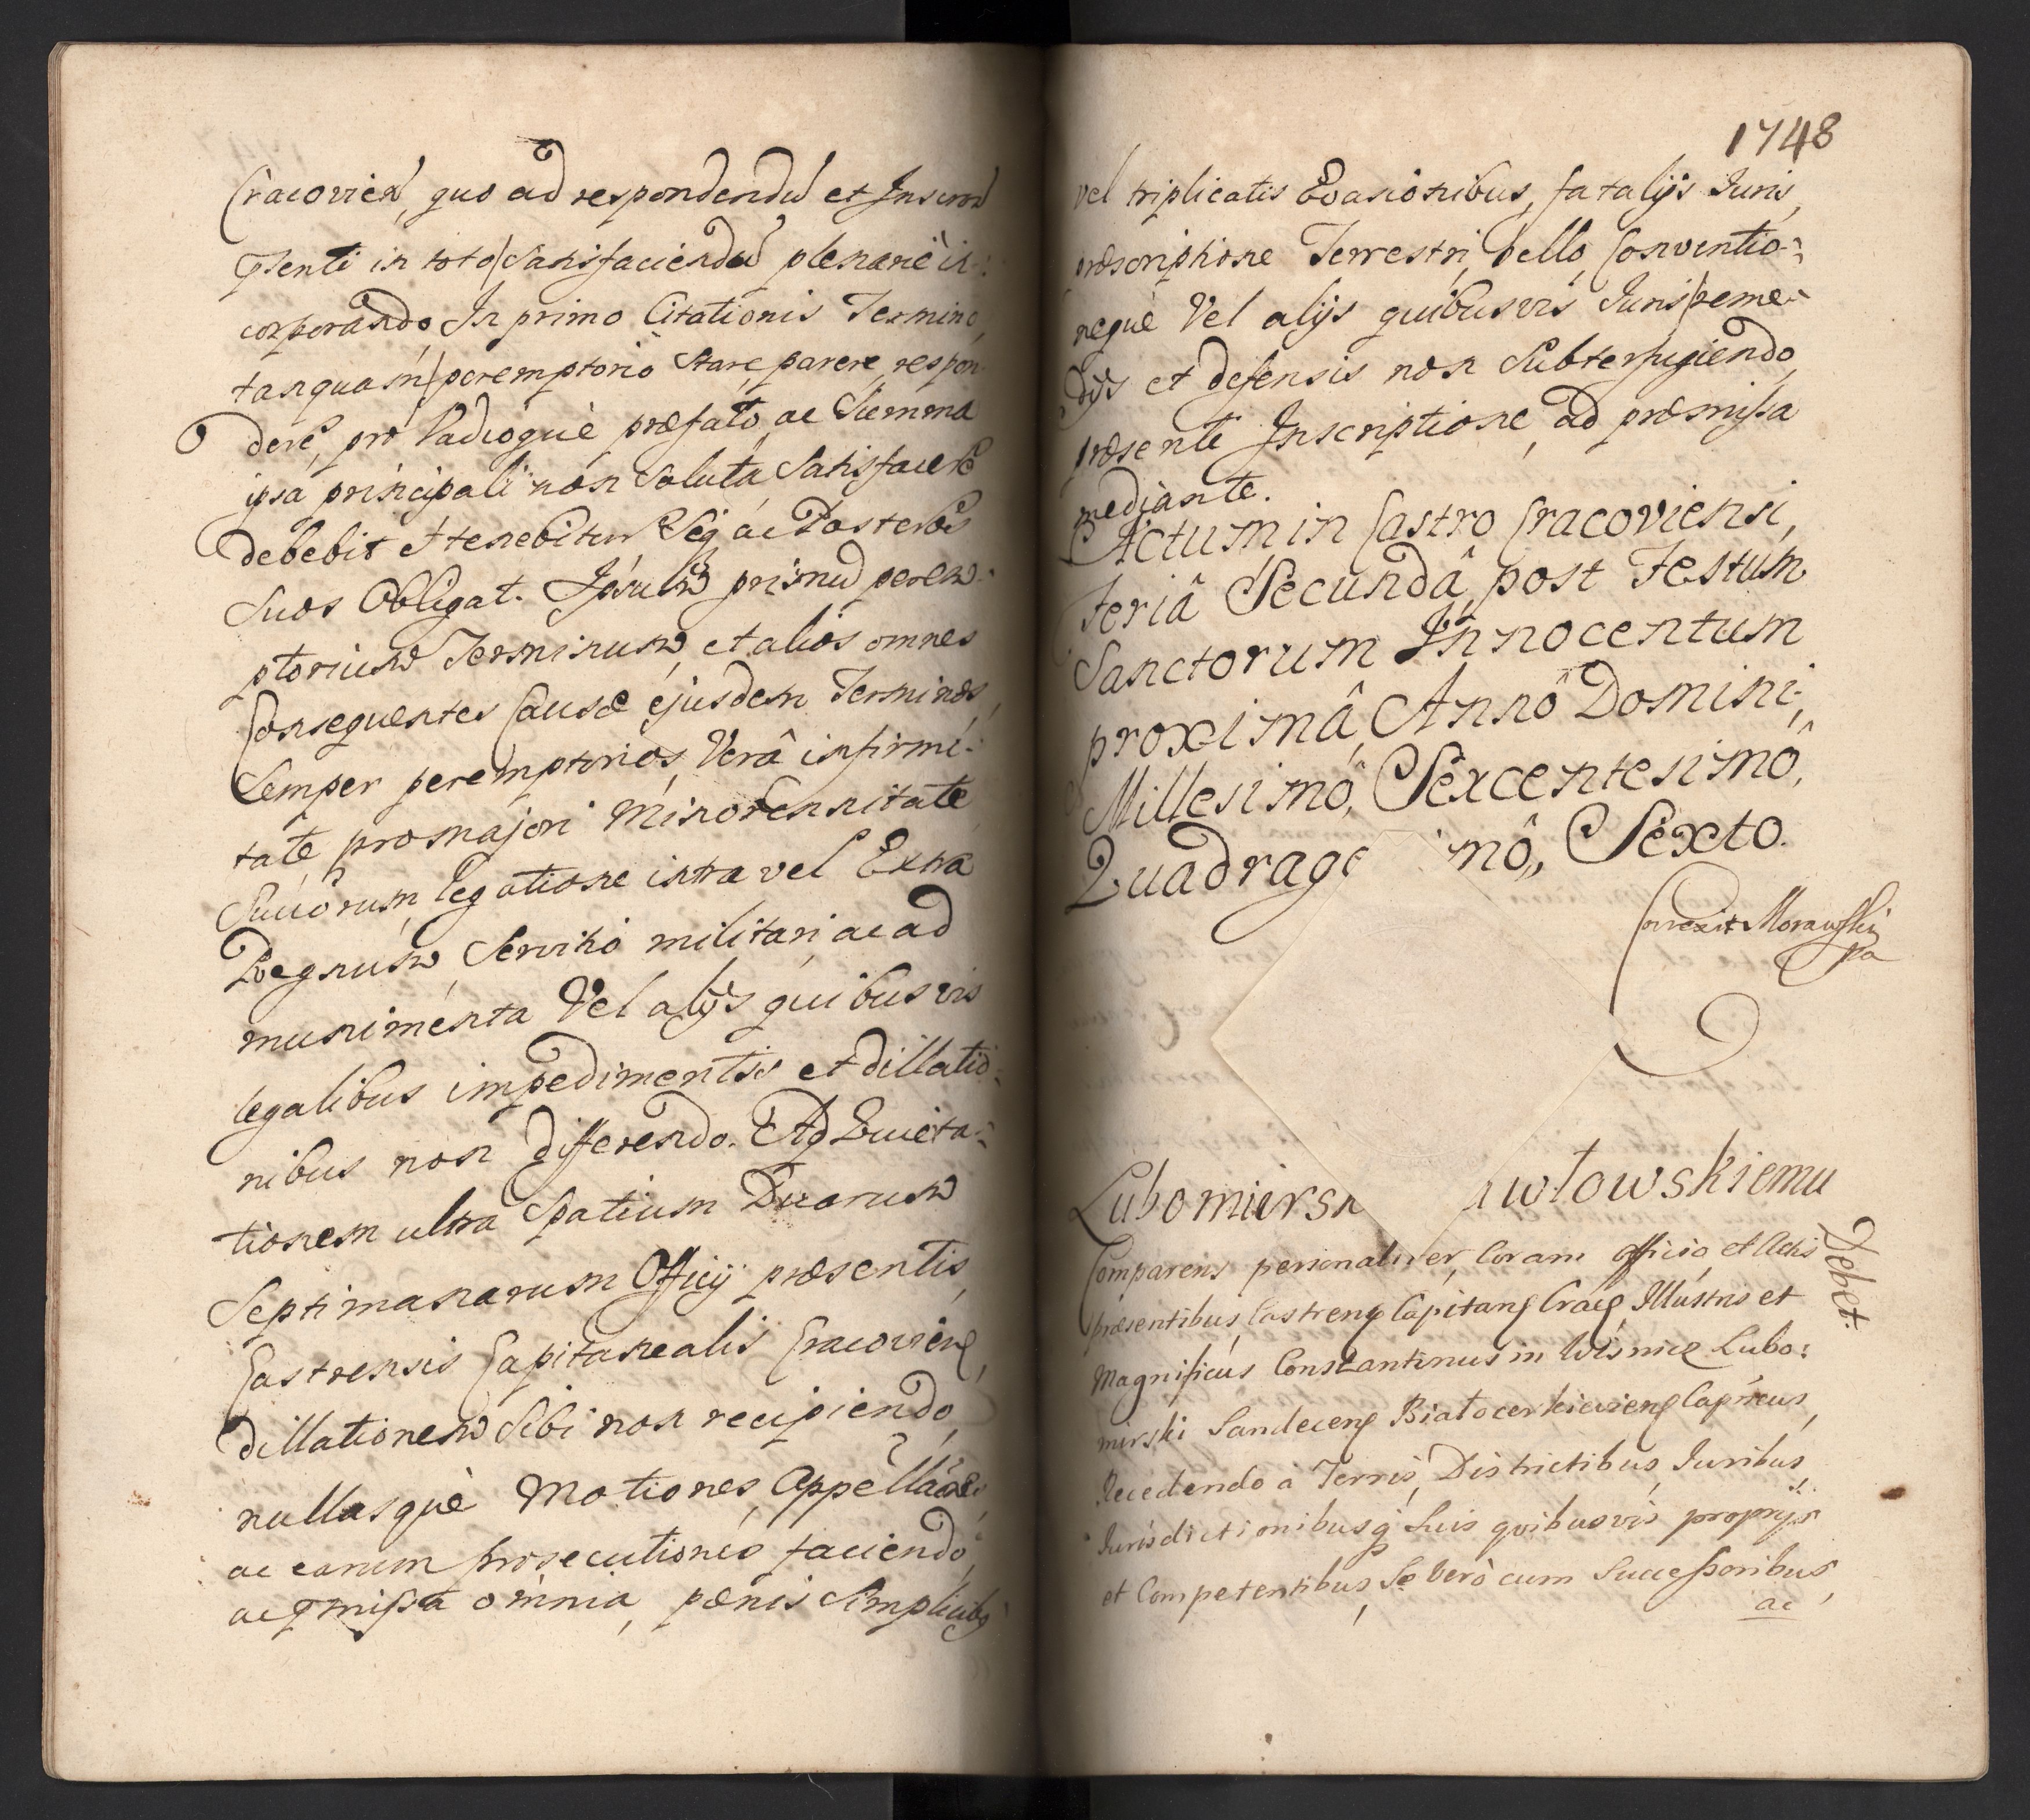 Cracovien, quo ad respondendũ et Inscrõ
pñti in toto satisfaciendũ plenarie in:
corporando, In primo Citationis Termino,
tanquam peremptorio stare, parere, respon-
dere, pro Vadioque præfato, ac Summa
ipsa principali non soluta, satisfacere
debebit et tenebitur Seq ac Posteros
Suos Obligat. Ipsum primũ perem-
ptorium Terminum, et alios omnes
Consequentes Causæ ejusdem Terminos,
Semper peremptorios, Verâ infirmi-
tate, pro majori Minorennitate
Suorum, legatione intra vel Extra
Regnum, Servitio militari, ac ad
munimenta Vel alijs quibusvis
legalibus impedimentis et dillatio-
nibus non differendo. Ad Quieta-
tionem ultra Spatium Duarum
Septimanarum Officij præsentis,
Castrensis Capitanealis Cracovien,
dillationem Sibi non recipiendo,
nullasquè Motiones, Appellães,
ac earum prosecutiones faciendo,
ac pmissa omnia, pœnis Simplicibq
1748
vel triplicatis Evasionibus, fatalijs Juris,
præscriptione Terrestri, bello, Conventio-
neque Vel alijs quibusvis Juris reme-
dijs et defensis non Subterfugiendo,
præsente Inscriptione, ad præmissa
mediante.
Actum in Castro Cracoviensi,
Feriâ Secundâ, post Festum
Sanctorum Innocentum
proximâ, Annô Domini,
Millesimô, Sexcentesimô,
Quadrage imô, Sexto.
Correxit Morawski
pa
Lubomirsk awłowskiemu
Debet.
Comparens personaliter, Coram officio, et Actis
præsentibus, Castren Capitan Crac, Illustris et
Magnificus Constantinus in Wisnicz Lubo:
mirski Sandecen Białocerkiewien Capitneus,
Recedendo à Terris, Districtibus, Juribus,
Jurisdictionibusq Suis quibusvis proprijs
et Competentibus, Se verò cum Successoribus,
ac